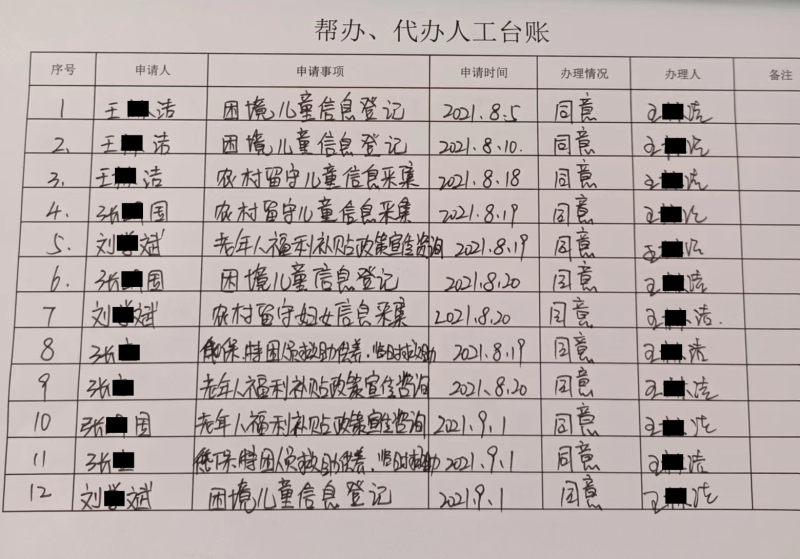 帮办、代办人工台账
序号 申请人 申请事项 申请时间 办理情况 办理人 备注
1 王 洁 困境儿童信息登记 2021.8.5 同意 王 洁
2. 王 洁 困境儿童信息登记 2021.8.10. 同意 王 洁
3. 王 洁 农村留守儿童信息采集 2021.8.18 同意 王 洁
4. 张 国 农村留守儿童信息采集 2021.8.19 同意 王 洁
5. 刘 斌 老年人福利补贴政策宣传咨询 2021.8.19 同意 王 洁
6. 张 国 困境儿童信息登记 2021.8.20 同意 王 洁
7 刘 斌 农村留守妇女信息采集 2021.8.20 同意 王 洁.
8 张 低保.特困人员救助供养.临时救助 2021.8.19 同意 王 洁
9 张 老年人福利补贴政策宣传咨询 2021.8.20 同意 王 洁
10 张 国 老年人福利补贴政策宣传咨询 2021.9.1 同意 王 洁
11 张 低保.特困人员救助供养.临时救助 2021.9.1 同意 王 洁
12 刘 斌 困境儿童信息登记 2021.9.1 同意 王 洁